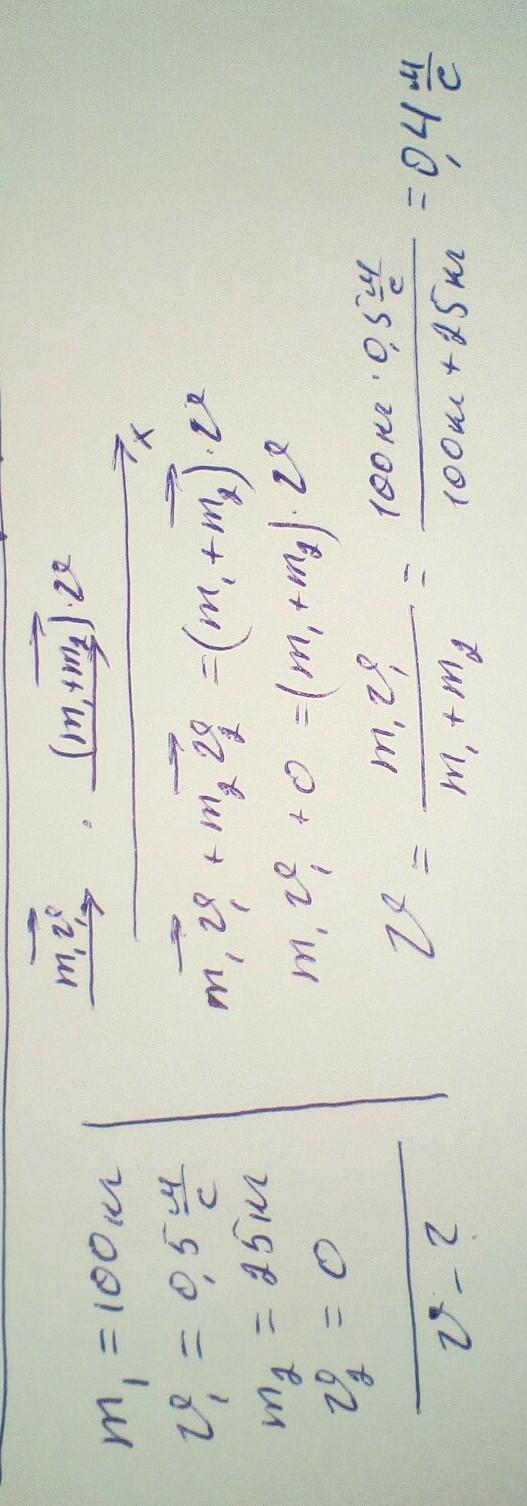 m₁ = 100 кг
υ₁ = 0,5 м/с
m₂ = 25 кг
υ₂ = 0
υ - ?
m₁υ⃗₁ (m₁+m₂)·υ⃗
x
m₁υ⃗₁ + m₂υ⃗₂ = (m₁ + m₂)·υ⃗
m₁υ₁ + 0 = (m₁ + m₂)·υ
υ = m₁υ₁ / m₁ + m₂ = 100 кг · 0,5 м/с / 100 кг + 25 кг = 0,4 м/с